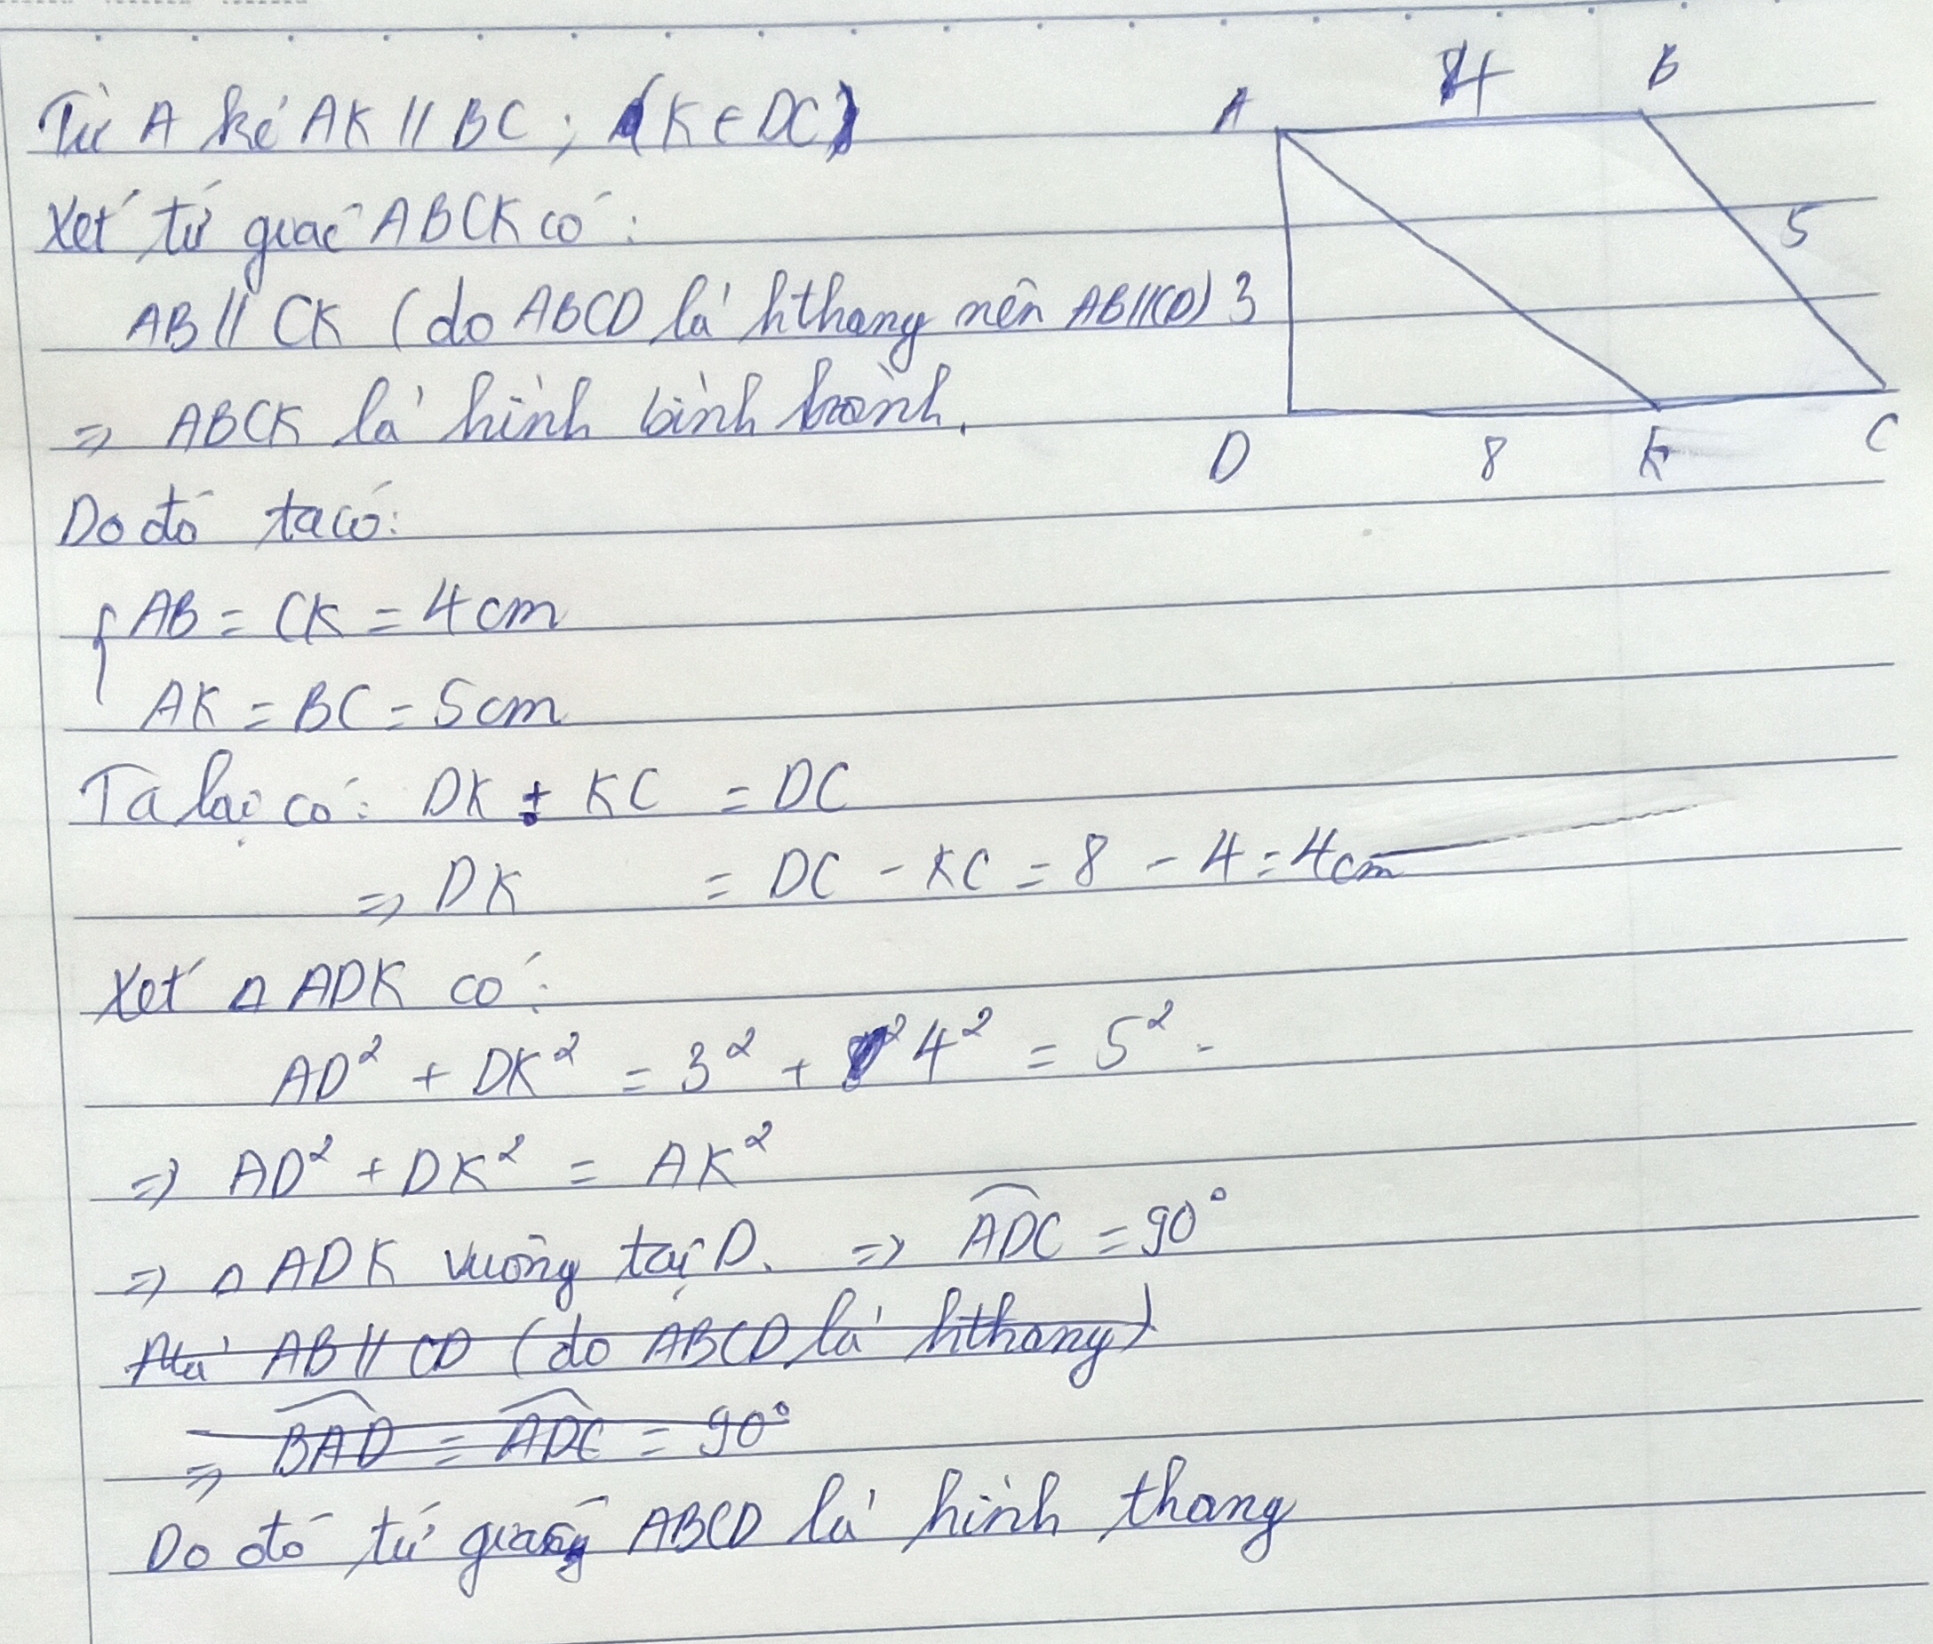 Từ A kẻ AK // BC ; (K ∈ DC)
Xét tứ giác ABCK có :
AB // CK (do ABCD là hthang nên AB//CD)
⇒ ABCK là hình bình hành.
Do đó ta có:
{ AB = CK = 4 cm
AK = BC = 5 cm
Ta lại có: DK + KC = DC
⇒ DK = DC - KC = 8 - 4 = 4cm
Xét Δ ADK có :
AD² + DK² = 3² + 4² = 5² -
⇒ AD² + DK² = AK²
⇒ Δ ADK vuông tại D. ⇒ ADC = 90°
Mà AB // CD (do ABCD là hthang)
⇒ BAD = ADC = 90°
Do đó tứ giác ABCD là hình thang
A 4 B
5
3
D 8 K C